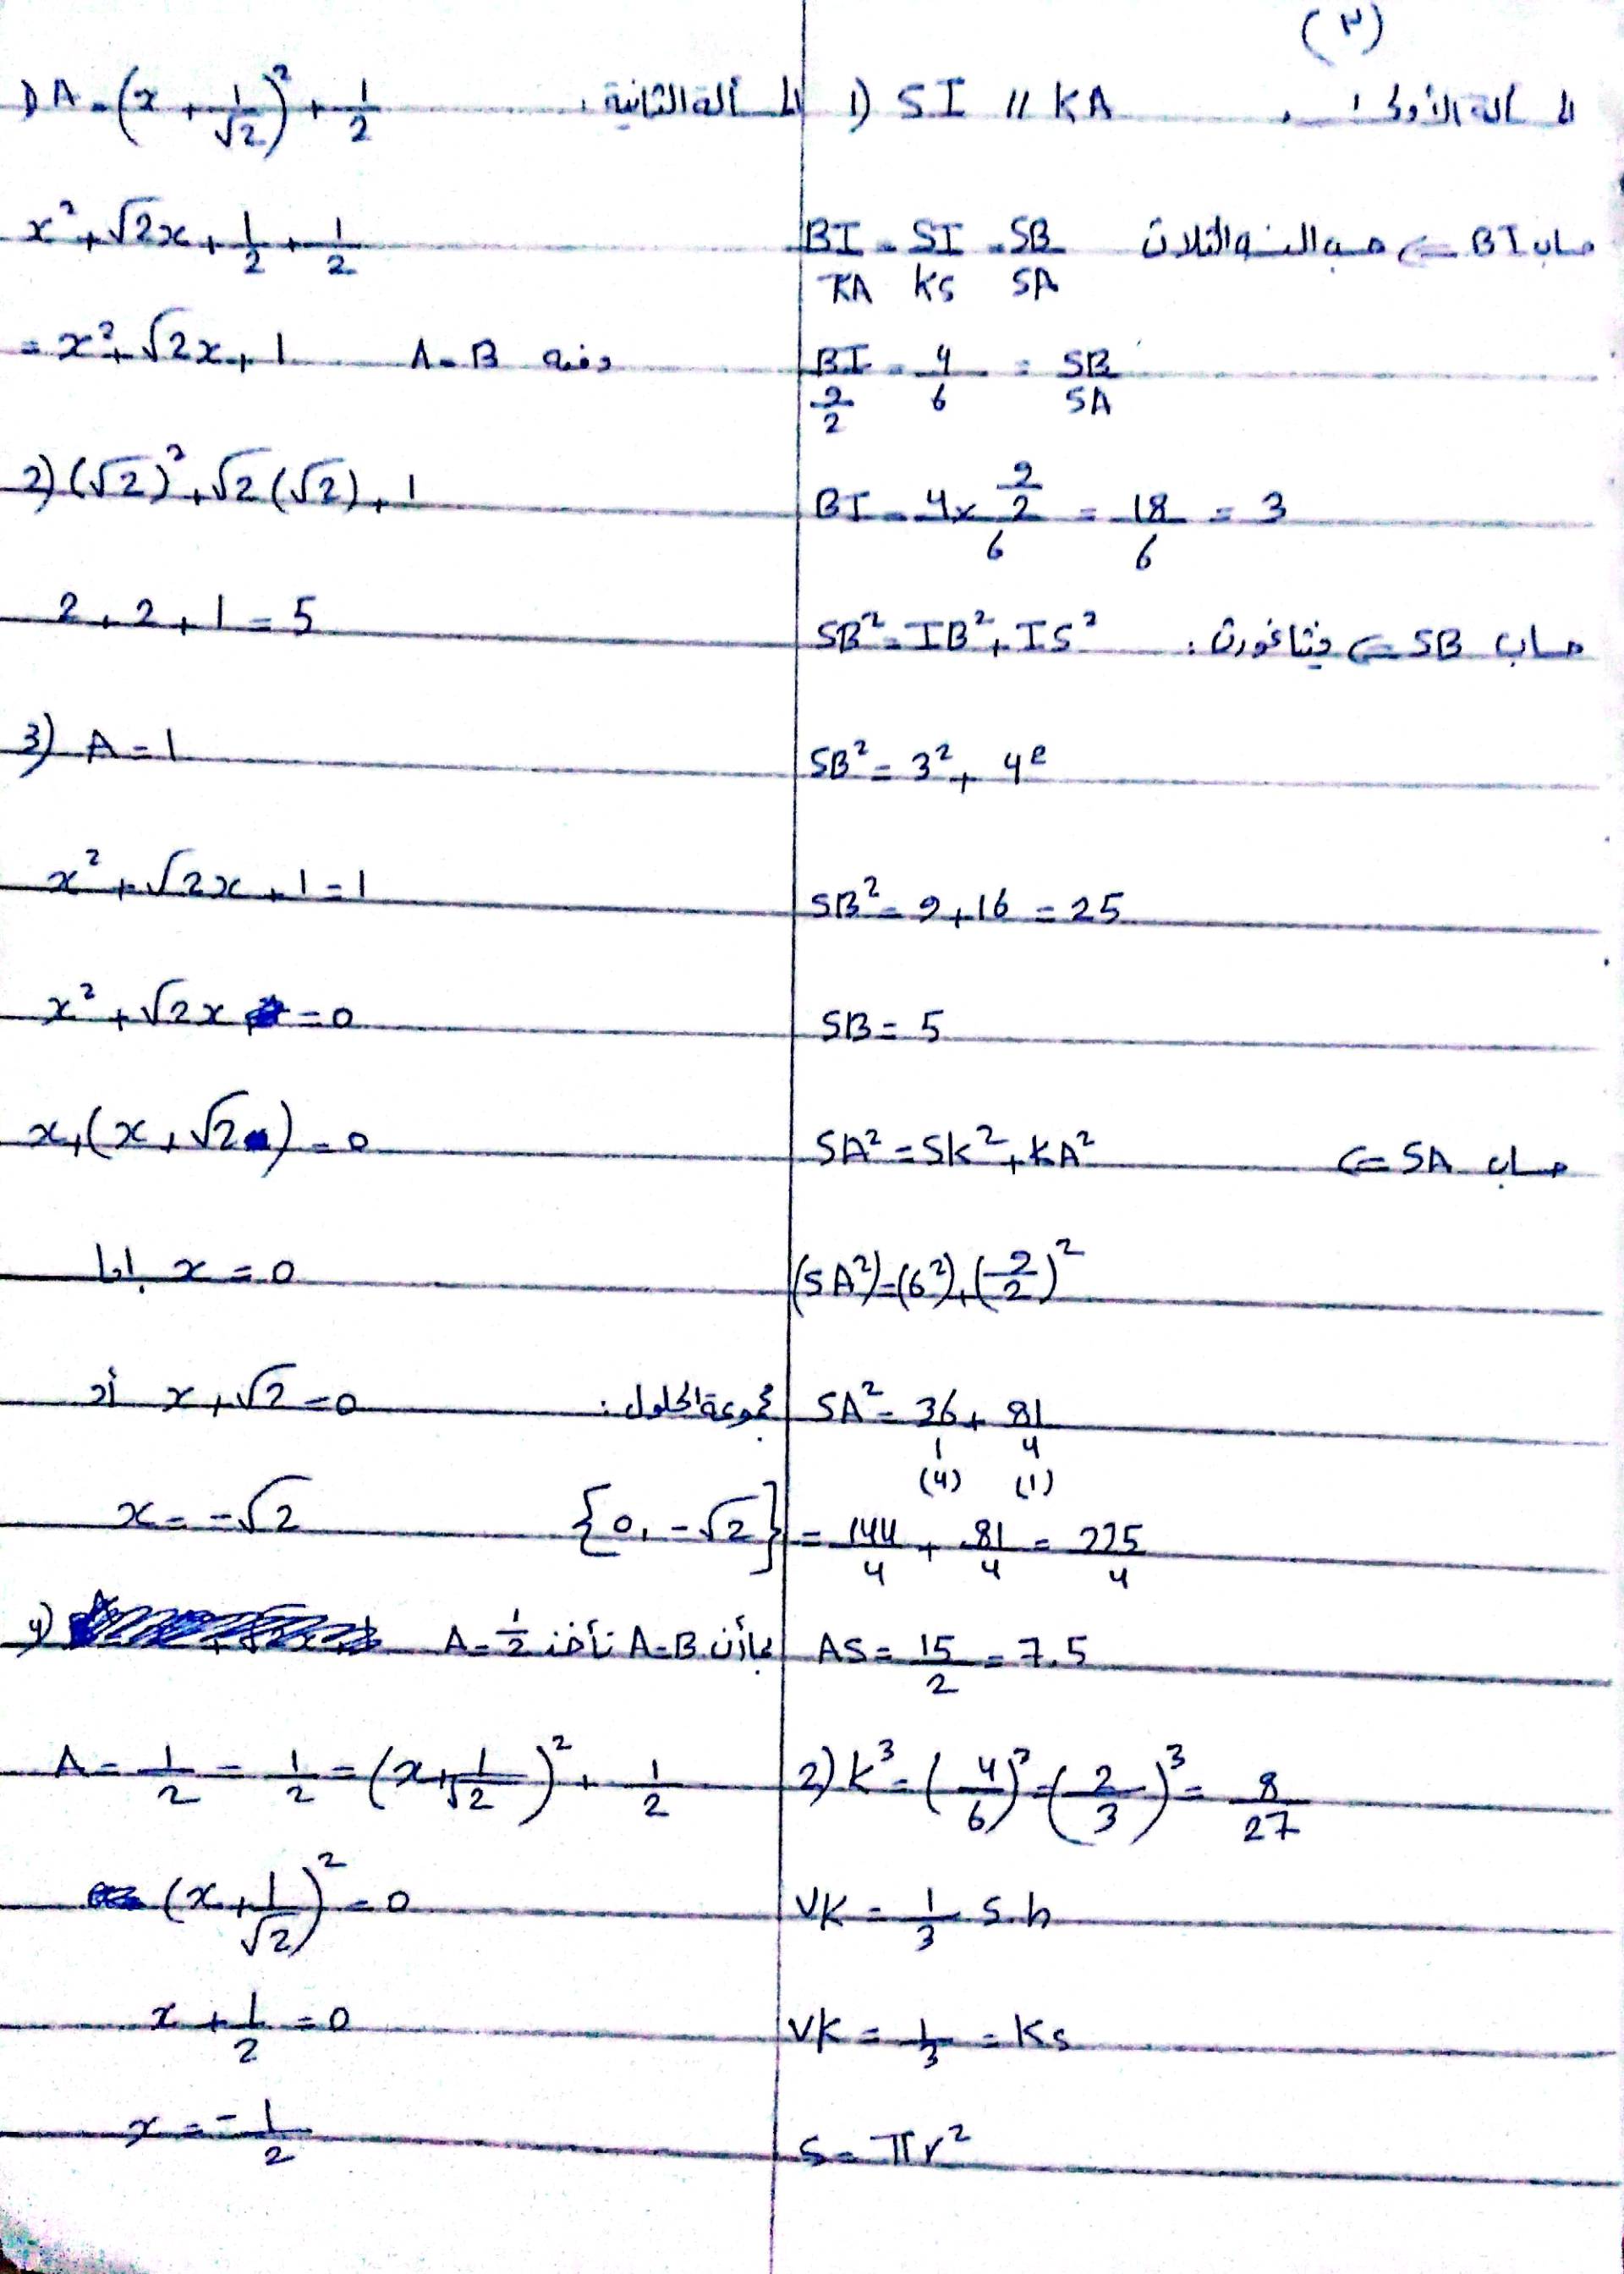 (٣)
المسألة الأولى:
1) SI // KA
حساب BI ⇐ حسب النسب الثلاث
BI/KA = SI/KS = SB/SA
BI/(9/2) = 4/6 = SB/SA
BI = (4 × 9/2)/6 = 18/6 = 3
حساب SB ⇐ فيثاغورث: SB² = IB² + IS²
SB² = 3² + 4²
SB² = 9 + 16 = 25
SB = 5
حساب SA ⇐ SA² = SK² + KA²
(SA²) = (6²) + (9/2)²
SA² = 36/1 + 81/4
(4) (1)
= 144/4 + 81/4 = 225/4
AS = 15/2 = 7.5
2) K³ = (4/6)³ = (2/3)³ = 8/27
VK = 1/3 S.h
VK = 1/3 = KS
S = πr²
المسألة الثانية:
1) A = (x + 1/√2)² + 1/2
x² + √2x + 1/2 + 1/2
= x² + √2x + 1 ومنه A = B
2) (√2)² + √2(√2) + 1
2 + 2 + 1 = 5
3) A = 1
x² + √2x + 1 = 1
x² + √2x = 0
x + (x + √2) = 0
إما x = 0
أو x + √2 = 0 مجموعة الحلول:
x = -√2 {0, -√2}
4) بما أن A = B نأخذ A = 1/2
A = 1/2 = 1/2 = (x + 1/√2)² + 1/2
(x + 1/√2)² = 0
x + 1/2 = 0
x = -1/2